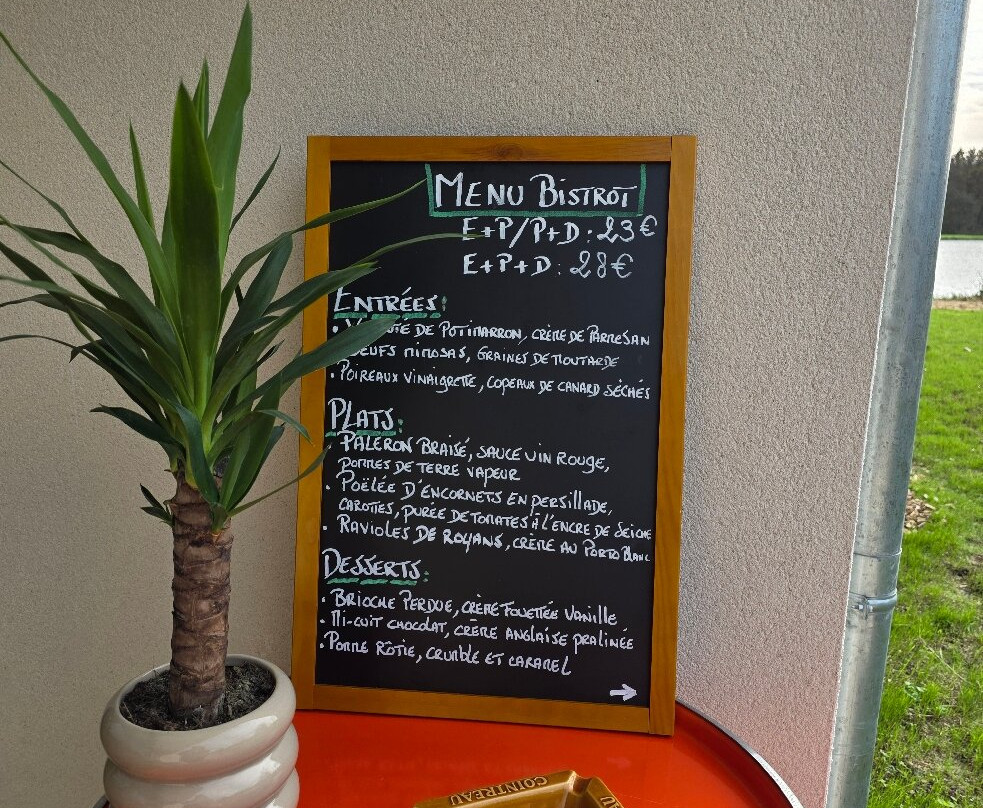 MENU BISTROT
E+P/P+D : 23€
E+P+D : 28€
ENTRÉES:
DE POTIMARRON, CRÈME DE PARMESAN
OEUFS MIMOSAS, GRAINES DE MOUTARDE
• POIREAUX VINAIGRETTE, COPEAUX DE CANARD SÉCHÉS
PLATS:
• PALERON BRAISÉ, SAUCE VIN ROUGE,
POMMES DE TERRE VAPEUR
• POÊLÉE D'ENCORNETS EN PERSILLADE,
CAROTTES, PURÉE DE TOMATES À L'ENCRE DE SEICHE
• RAVIOLES DE ROYANS, CRÈME AU PORTO BLANC
DESSERTS:
• BRIOCHE PERDUE, CRÈME FOUETTÉE VANILLE
• MI-CUIT CHOCOLAT, CRÈME ANGLAISE PRALINÉE
• POMME RÔTIE, CRUMBLE ET CARAMEL
COINTREAU